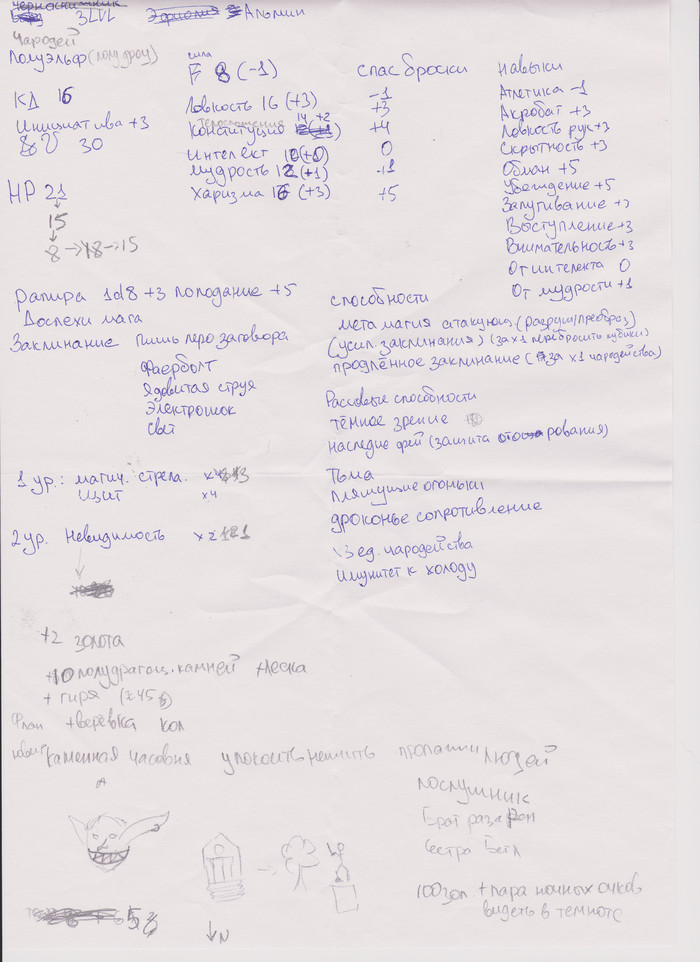 3LVL Альтин
Чародей
Полуэльф (полудроу)
сила
F 8 (-1)
спас броски
навыки
КД 16
Ловкость 16 (+3)
-1
+3
Атлетика -1
Акробат +3
Инициатива +3
Телосложения 14 +2
Конституция
+4
Ловкость рук +3
30
Интелект 10 (+0)
0
Скрытность +3
мудрость 12 (+1)
Обман +5
HP 21
Харизма 16 (+3)
+5
Убеждение +5
Запугивание
15
Выступление +3
8 → 18 → 15
Внимательность +3
От интелекта 0
От мудрости +1
Рапира 1d8 +3 попадание +5
Доспехи мага
Заклинание пишь перо заговора
Фаерболт
Ядовитая струя
Электрошок
свет
способности
мета магия атакующ. (разруш/преобраз)
(усил. заклинания) (за x1 перебросить кубики)
продлённое заклинание (за x1 чародейства)
Рассовые способности
тёмное зрение
наследие фей (защита
1 ур.: магич. стрела.
Щит x4
2 ур. Невидимость
Тьма
пляшущие огоньки
драконье сопротивление
3 ед. чародейства
Имунитет к холоду
+2 золота
+10 полудрагоц. камней + леска
+ гиря
+ верёвка кол
каменная часовня упокоить нежить пропажи людей
послушник
Брат
Сестра
100 зол + пара ночных очков
видеть в темноте
N